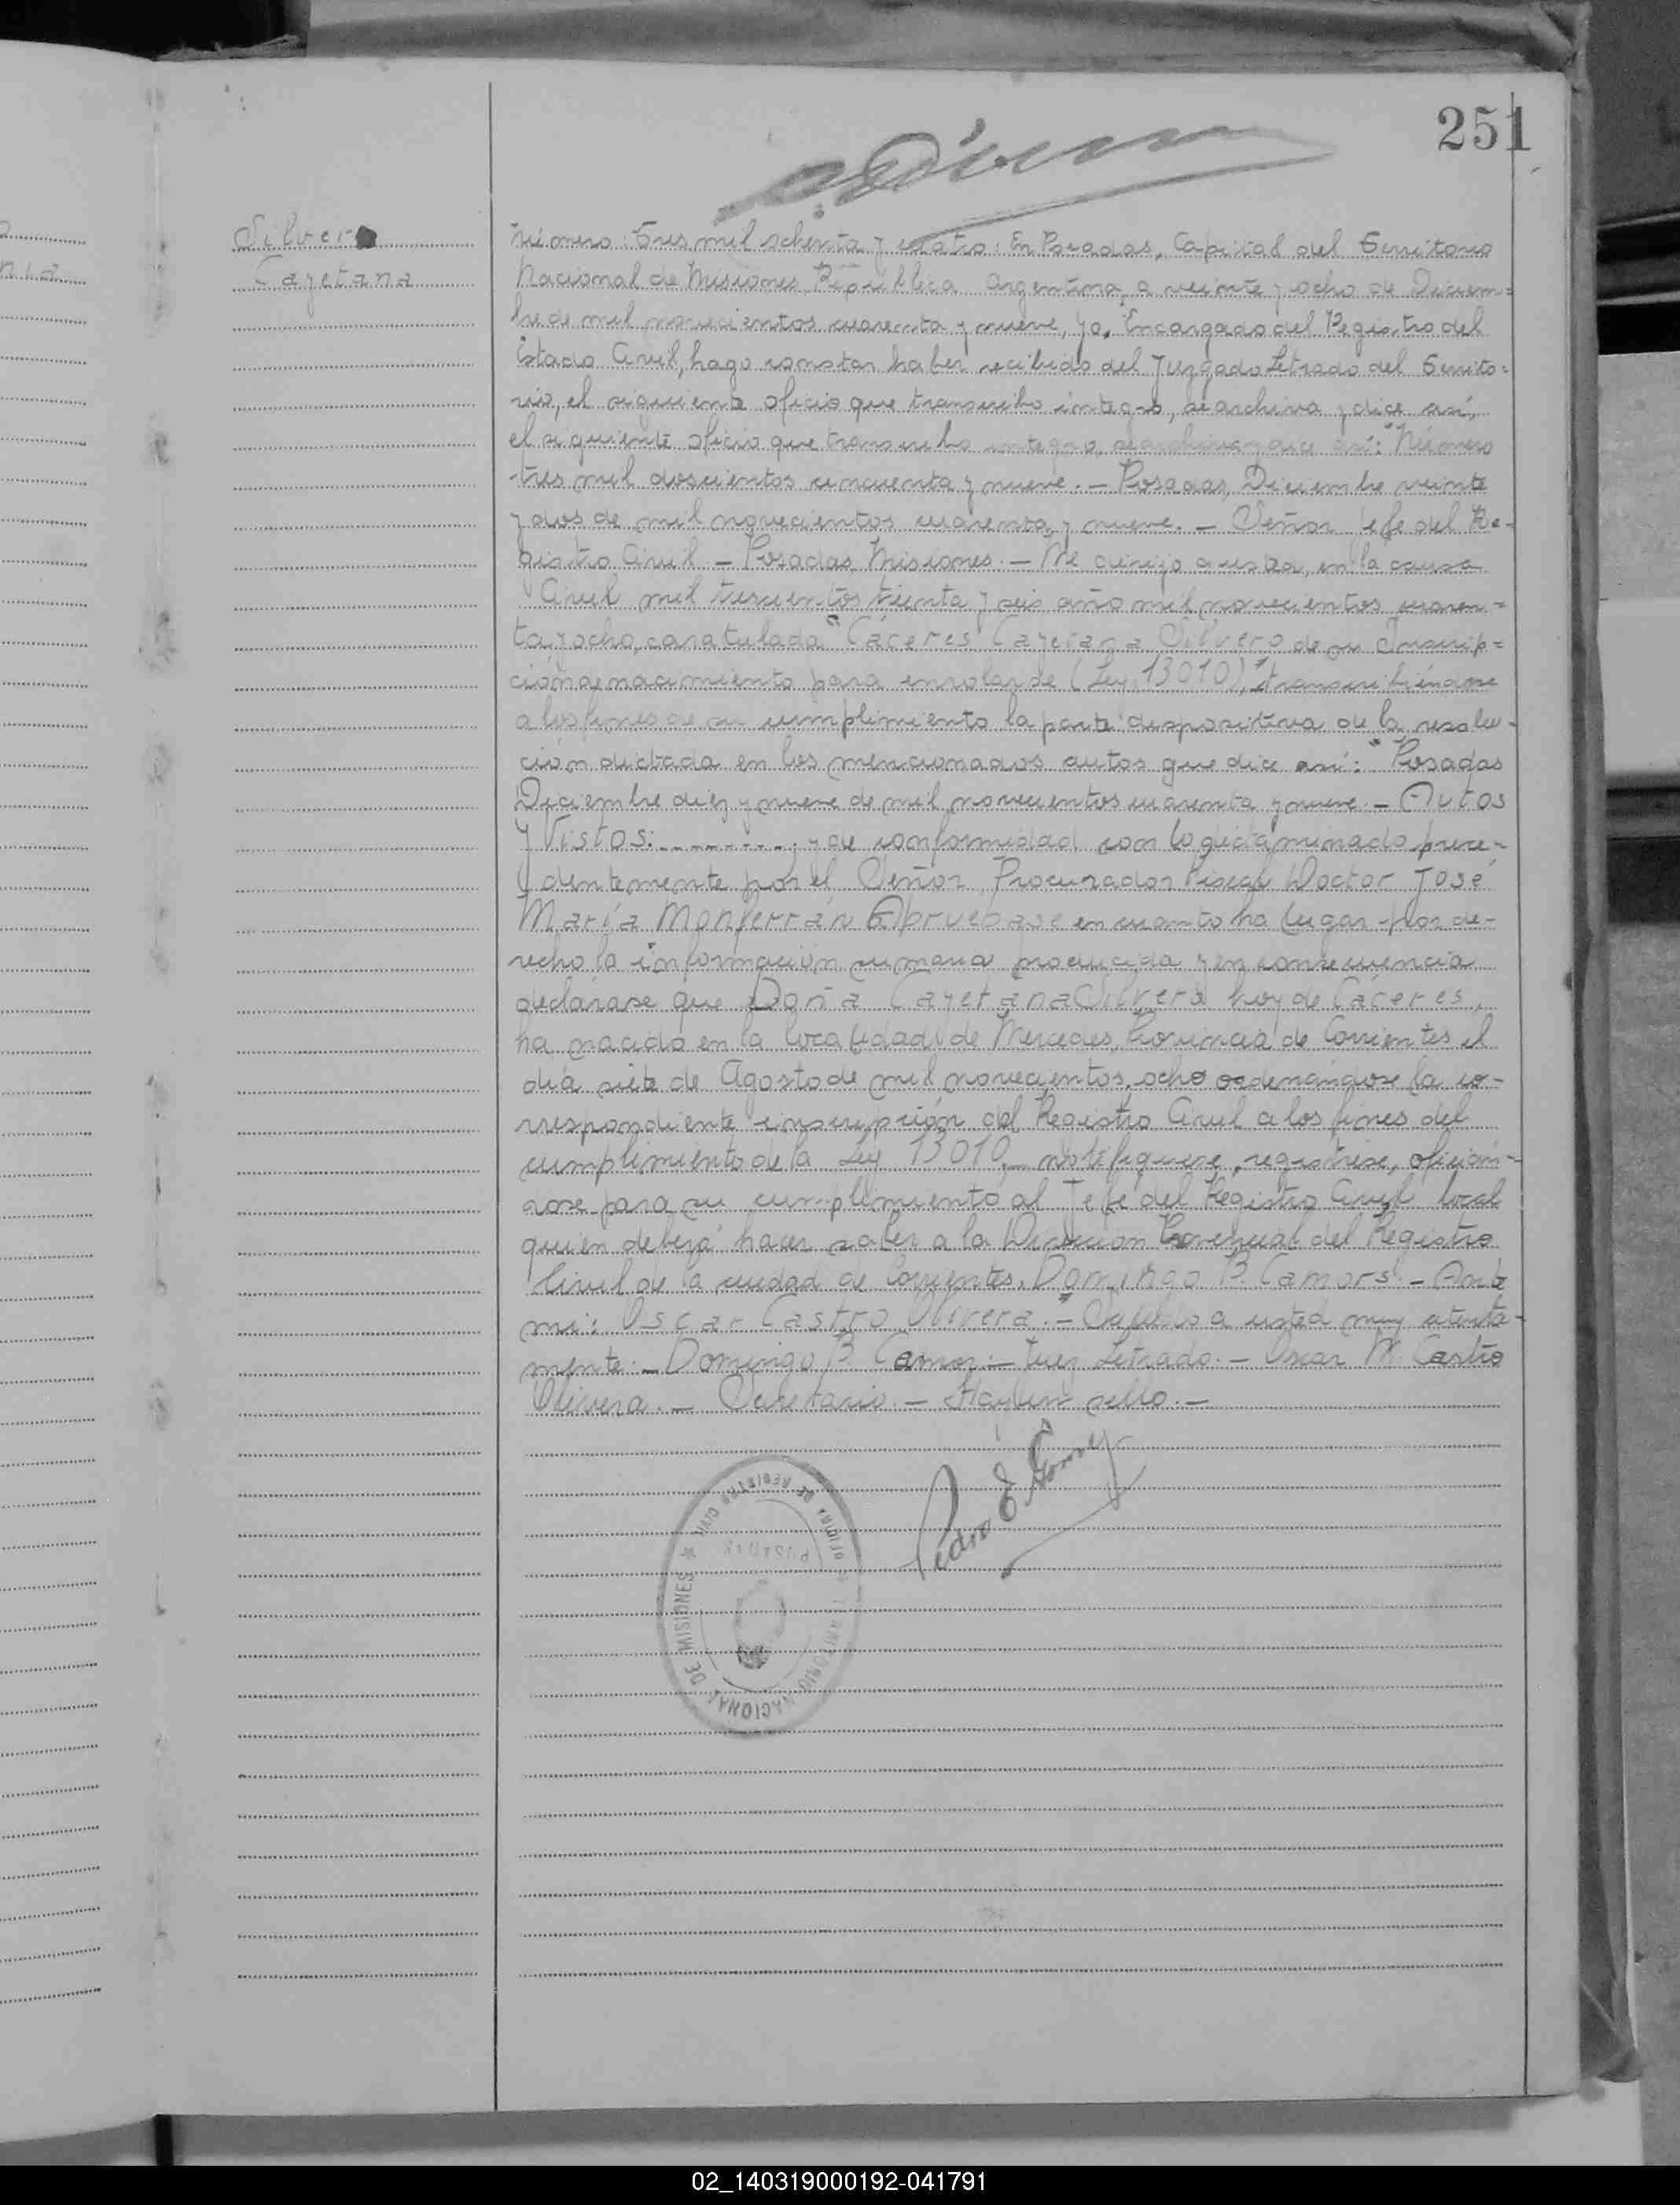 251
Silvero
Cayetana
Número: Tres mil ochenta y cuatro: En Posadas, Capital del Territorio
Nacional de Misiones República Argentina, a veinte y ocho de Diciem=
bre de mil novecientos cuarenta y nueve, yo, Encargado del Registro del
Estado Civil, hago constar haber recibido del Juzgado Letrado del Territo=
rio, el siguiente oficio que transcribo íntegro, se archiva y dice así,
el siguiente oficio que transcribo íntegro, se archiva y dice así: "Número
tres mil doscientos cincuenta y nueve. — Posadas, Diciembre veinte
y dos de mil novecientos cuarenta y nueve. — Señor Jefe del Re-
gistro Civil — Posadas, Misiones. — Me dirijo a usted, en la causa
Civil mil trescientos treinta y seis año mil novecientos cuaren=
ta y ocho, caratulada "Cáceres Cayetana Silvero de su Inscrip=
ción de nacimiento para enrolarse (Ley 13010)", transcribiéndose
a los fines de su cumplimiento la parte dispositiva de la resolu-
ción dictada en los mencionados autos que dice así: "Posadas
Diciembre diez y nueve de mil novecientos cuarenta y nueve. — Autos
y Vistos: .......... y de conformidad con lo dictaminado prece-
dentemente por el Señor Procurador Fiscal Doctor José
María Monferrán Apruebase en cuanto ha lugar por de-
recho la información sumaria producida y en consecuencia
declárase que Doña Cayetana Silvero hoy de Cáceres,
ha nacido en la localidad de Mercedes, Provincia de Corrientes el
día siete de Agosto de mil novecientos ocho ordenándose la co-
rrespondiente inscripción del Registro Civil a los fines del
cumplimiento de la Ley 13010, notifíquese, regístrese, oficián-
dose para su cumplimiento al Jefe del Registro Civil local
quien deberá hacer saber a la Dirección Provincial del Registro
Civil de la ciudad de Corrientes. Domingo B. Camors. — Ante
mi: Oscar Castro Olivera. — Saludo a usted muy atenta-
mente. — Domingo B. Camors. — Juez Letrado. — Oscar M. Castro
Olivera. — Secretario. — Hay un sello. —
Pedro E. Gomez
OFICINA DE REGISTRO CIVIL
POSADAS
TERRITORIO NACIONAL DE MISIONES
02_140319000192-041791